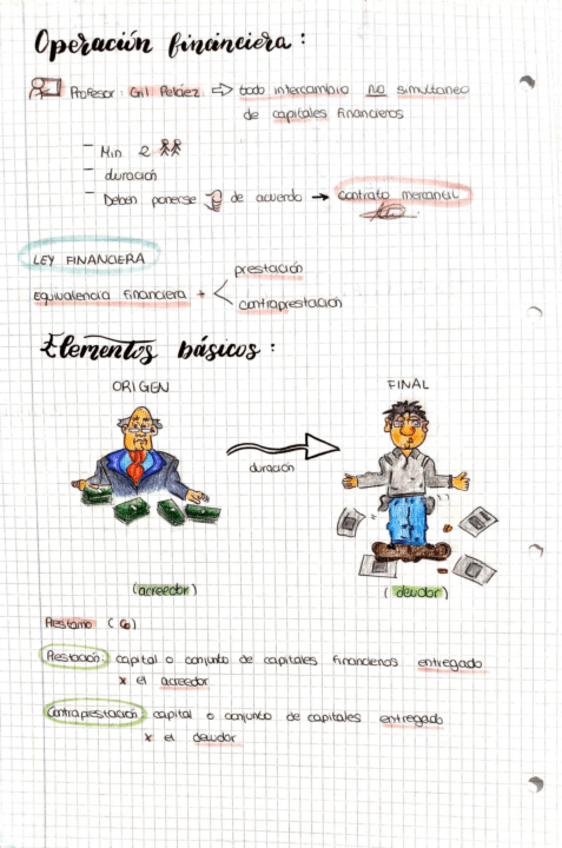 Operación financiera:
Profesor: Gil Peláez ⇨ todo intercambio no simultaneo
de capitales financieros
- Min 2
- duración
- Deben ponerse de acuerdo → contrato mercantil
LEY FINANCIERA
Equivalencia financiera + < prestación
contraprestación
Elementos básicos:
ORIGEN
FINAL
duración
(acreedor)
(deudor)
Prestamo (Co)
Prestación: capital o conjunto de capitales financieros entregado
x el acreedor
Contraprestación: capital o conjunto de capitales entregado
x el deudor